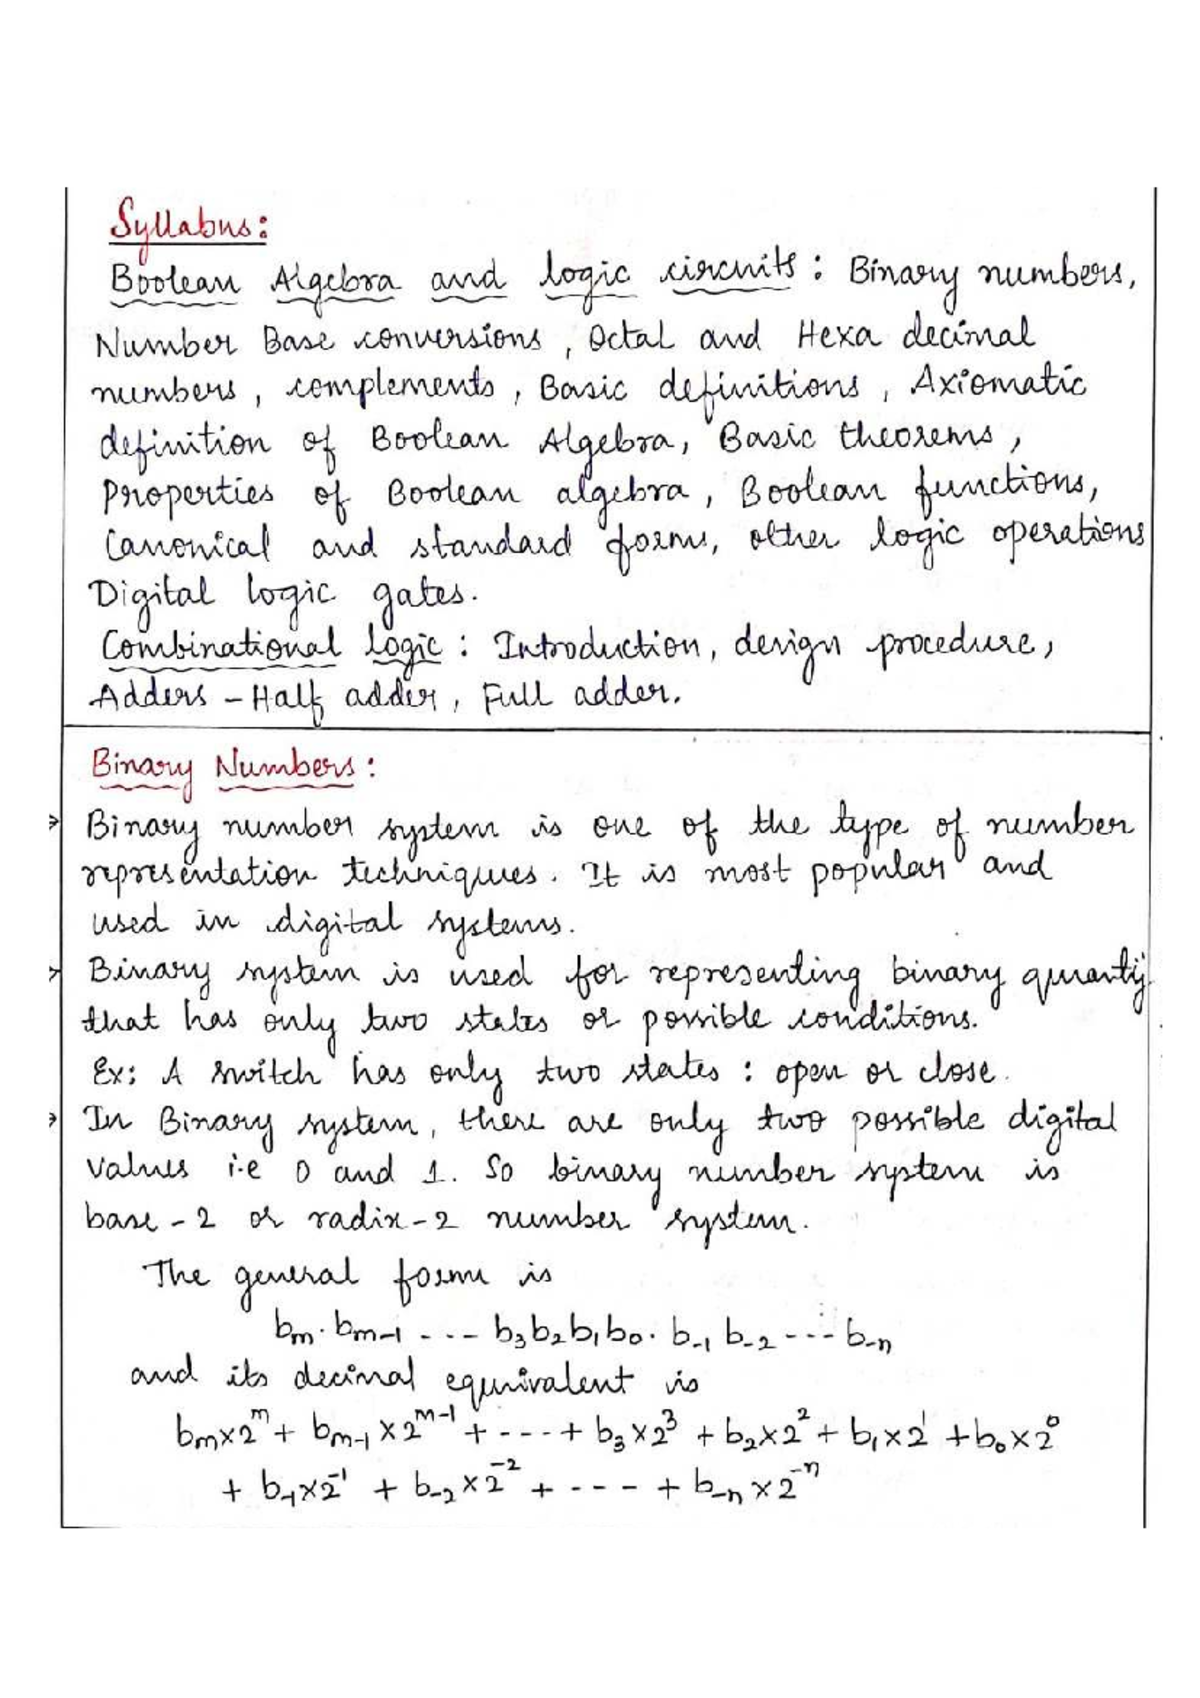 Syllabus:
Boolean Algebra and logic circuits: Binary numbers,
Number Base conversions, Octal and Hexa decimal
numbers, complements, Basic definitions, Axiomatic
definition of Boolean Algebra, Basic theorems,
Properties of Boolean algebra, Boolean functions,
Canonical and standard forms, other logic operations
Digital logic gates.
Combinational logic: Introduction, design procedure,
Adders - Half adder, Full adder.
Binary Numbers:
→ Binary number system is one of the type of number
representation techniques. It is most popular and
used in digital systems.
→ Binary system is used for representing binary quantity
that has only two states or possible conditions.
Ex: A switch has only two states: open or close.
→ In Binary system, there are only two possible digital
values i.e 0 and 1. So binary number system is
base-2 or radix-2 number system.
The general form is
bₘ. bₘ₋₁ ---- b₃b₂b₁b₀. b₋₁ b₋₂ ---- b₋ₙ
and its decimal equivalent is
bₘ×2ᵐ + bₘ₋₁×2ᵐ⁻¹ + ---- + b₃×2³ + b₂×2² + b₁×2¹ + b₀×2⁰
+ b₋₁×2⁻¹ + b₋₂×2⁻² + ---- + b₋ₙ×2⁻ⁿ